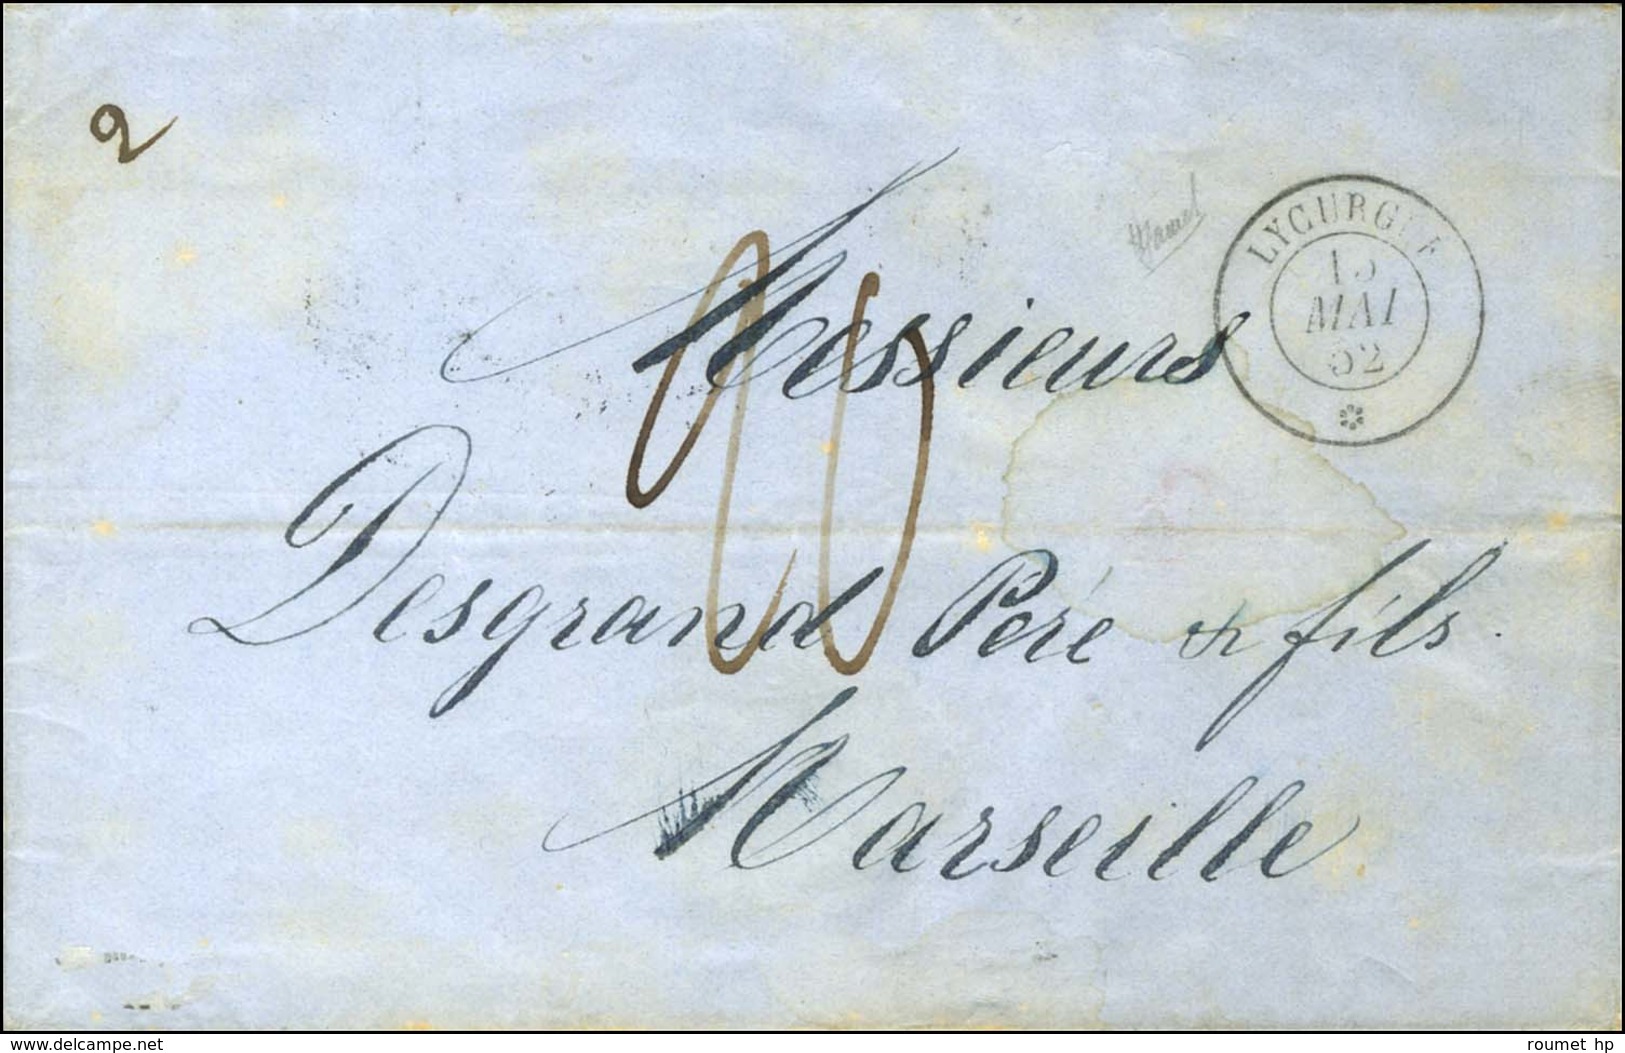 2
LYCURGUE
15
MAI
52
Messieurs
20
Desgrand Peré & fils.
Marseille
www.delcampe.net
roumet hp